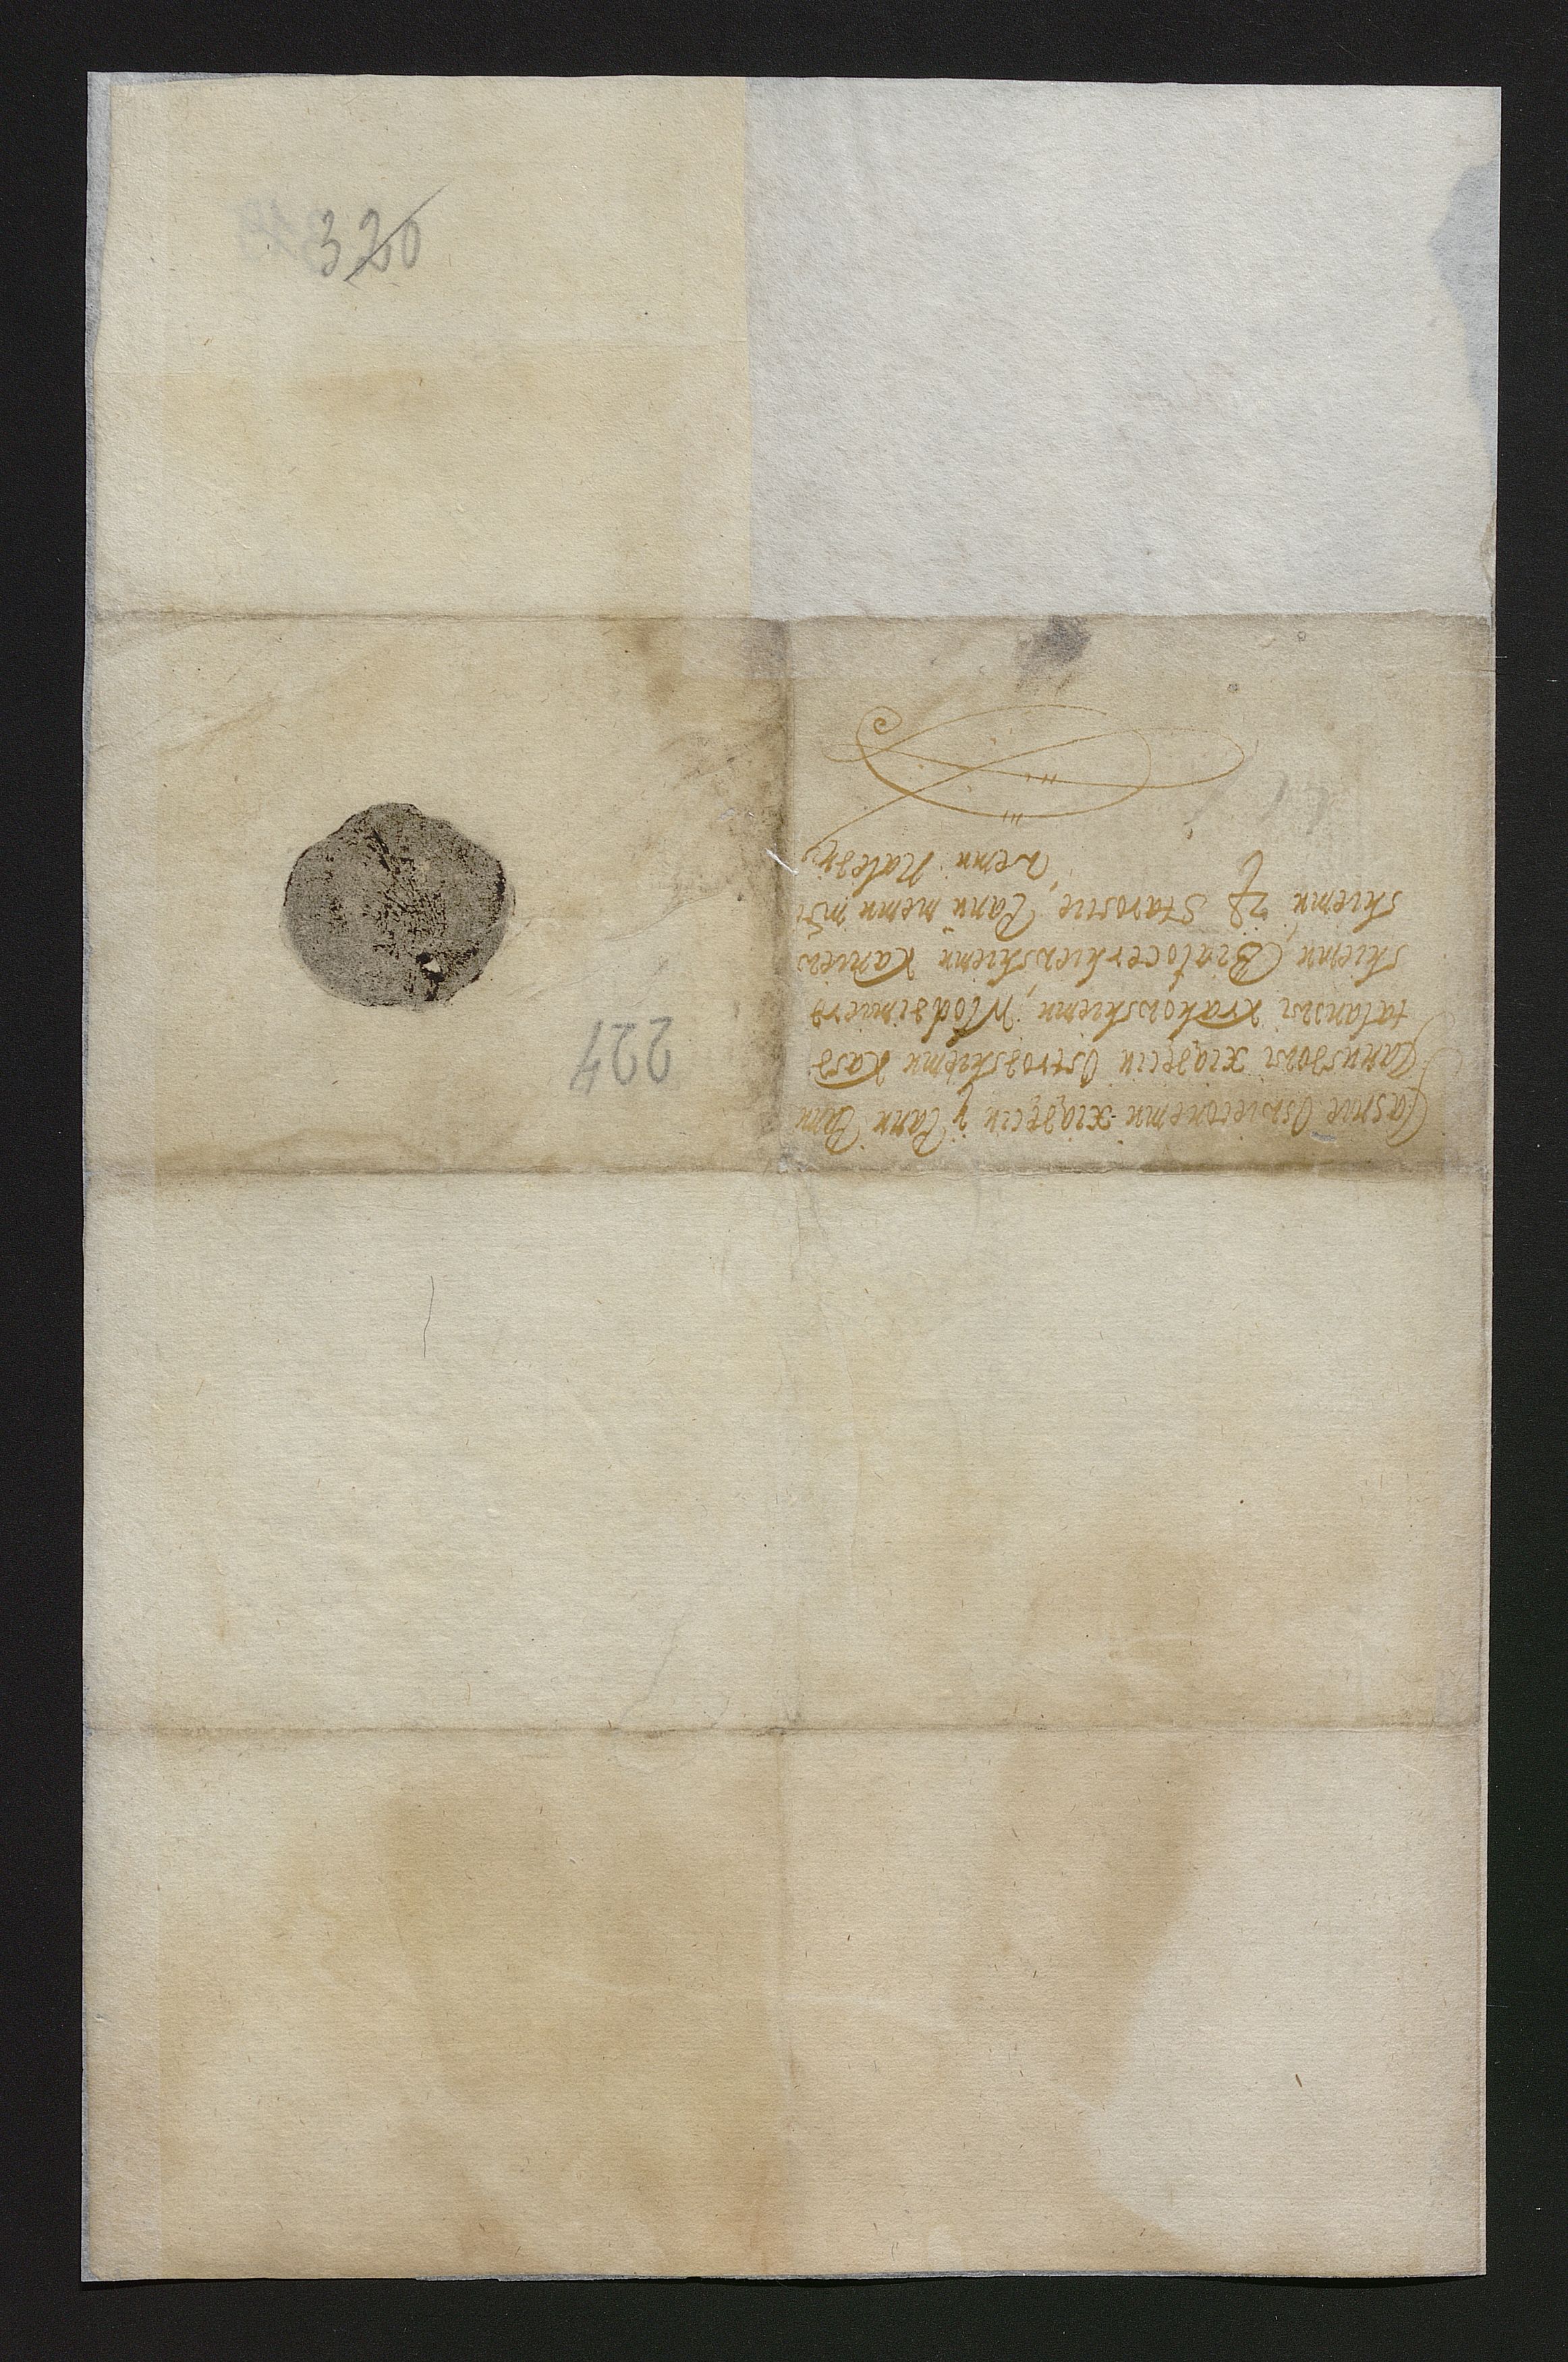 320
Jasnie Oswieconemu xiążęciu y Panu Panu
Janussowi xiążęciu Ostrozskiemu Kasz
talanowi Krakowskiemu, Wlodzimiers
skiemu, Białocerkiewskiemu Kaniews
skiemu Staroscie, Panu memu
wemu Należy
224